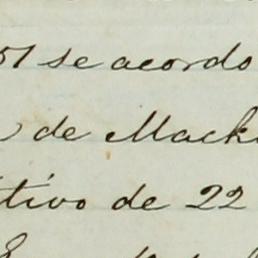 51 se acordo
de Mack
tivo de 22